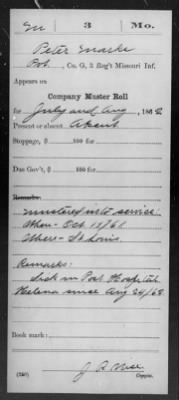 M 3 Mo.
Peter Marke
Pvt., Co. G, 3 Reg't Missouri Inf.
Appears on
Company Muster Roll
for July and Aug, 1862
Present or absent Absent
Stoppage, $ 100 for
Due Gov't, $ 100 for
Remarks:
Mustered into service:
When - Oct 18/61
Where - St Louis.
Remarks:
Sick in Post Hospital
Helena since Aug 24/62
Book mark:
Copyist.